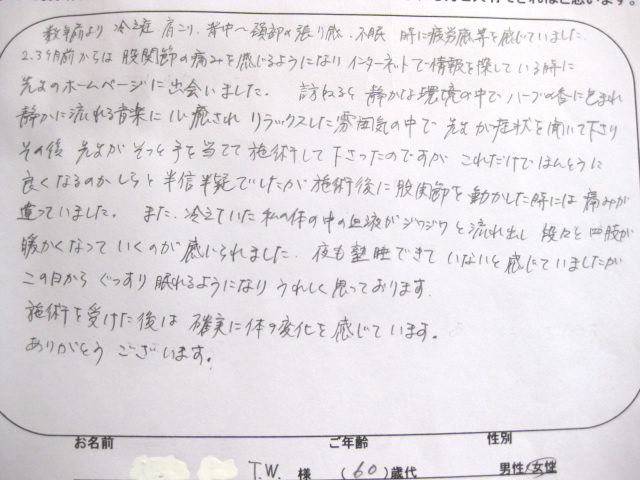 数年前より 冷え症 肩こり、背中〜頚部の張り感、不眠 時に疲労感等を感じていました。
2.3ヶ月前からは 股関節の痛みを感じるようになり インターネットで情報を探している時に
先生のホームページに出会いました。 訪ねると 静かな環境の中で ハーブの香に包まれ
静かに流れる音楽に 心癒され リラックスした雰囲気の中で 先生が症状を聞いて下さり
その後 先生が そっと手を当てて 施術して下さったのですが これだけでほんとうに
良くなるのかしらと 半信半疑でしたが 施術後に股関節を動かした時には 痛みが
違っていました。 また、冷えていた私の体の中の血液がジワジワと流れ出し 段々と四肢が
暖かくなっていくのが感じられました。 夜も塾睡できていないと感じていましたが
この日から ぐっすり眠れるようになり うれしく思っております。
施術を受けた後は 確実に体の変化を感じています。
ありがとう ございます。
お名前 ご年齢 性別
T.W. 様 (60)歳代 男性・女性